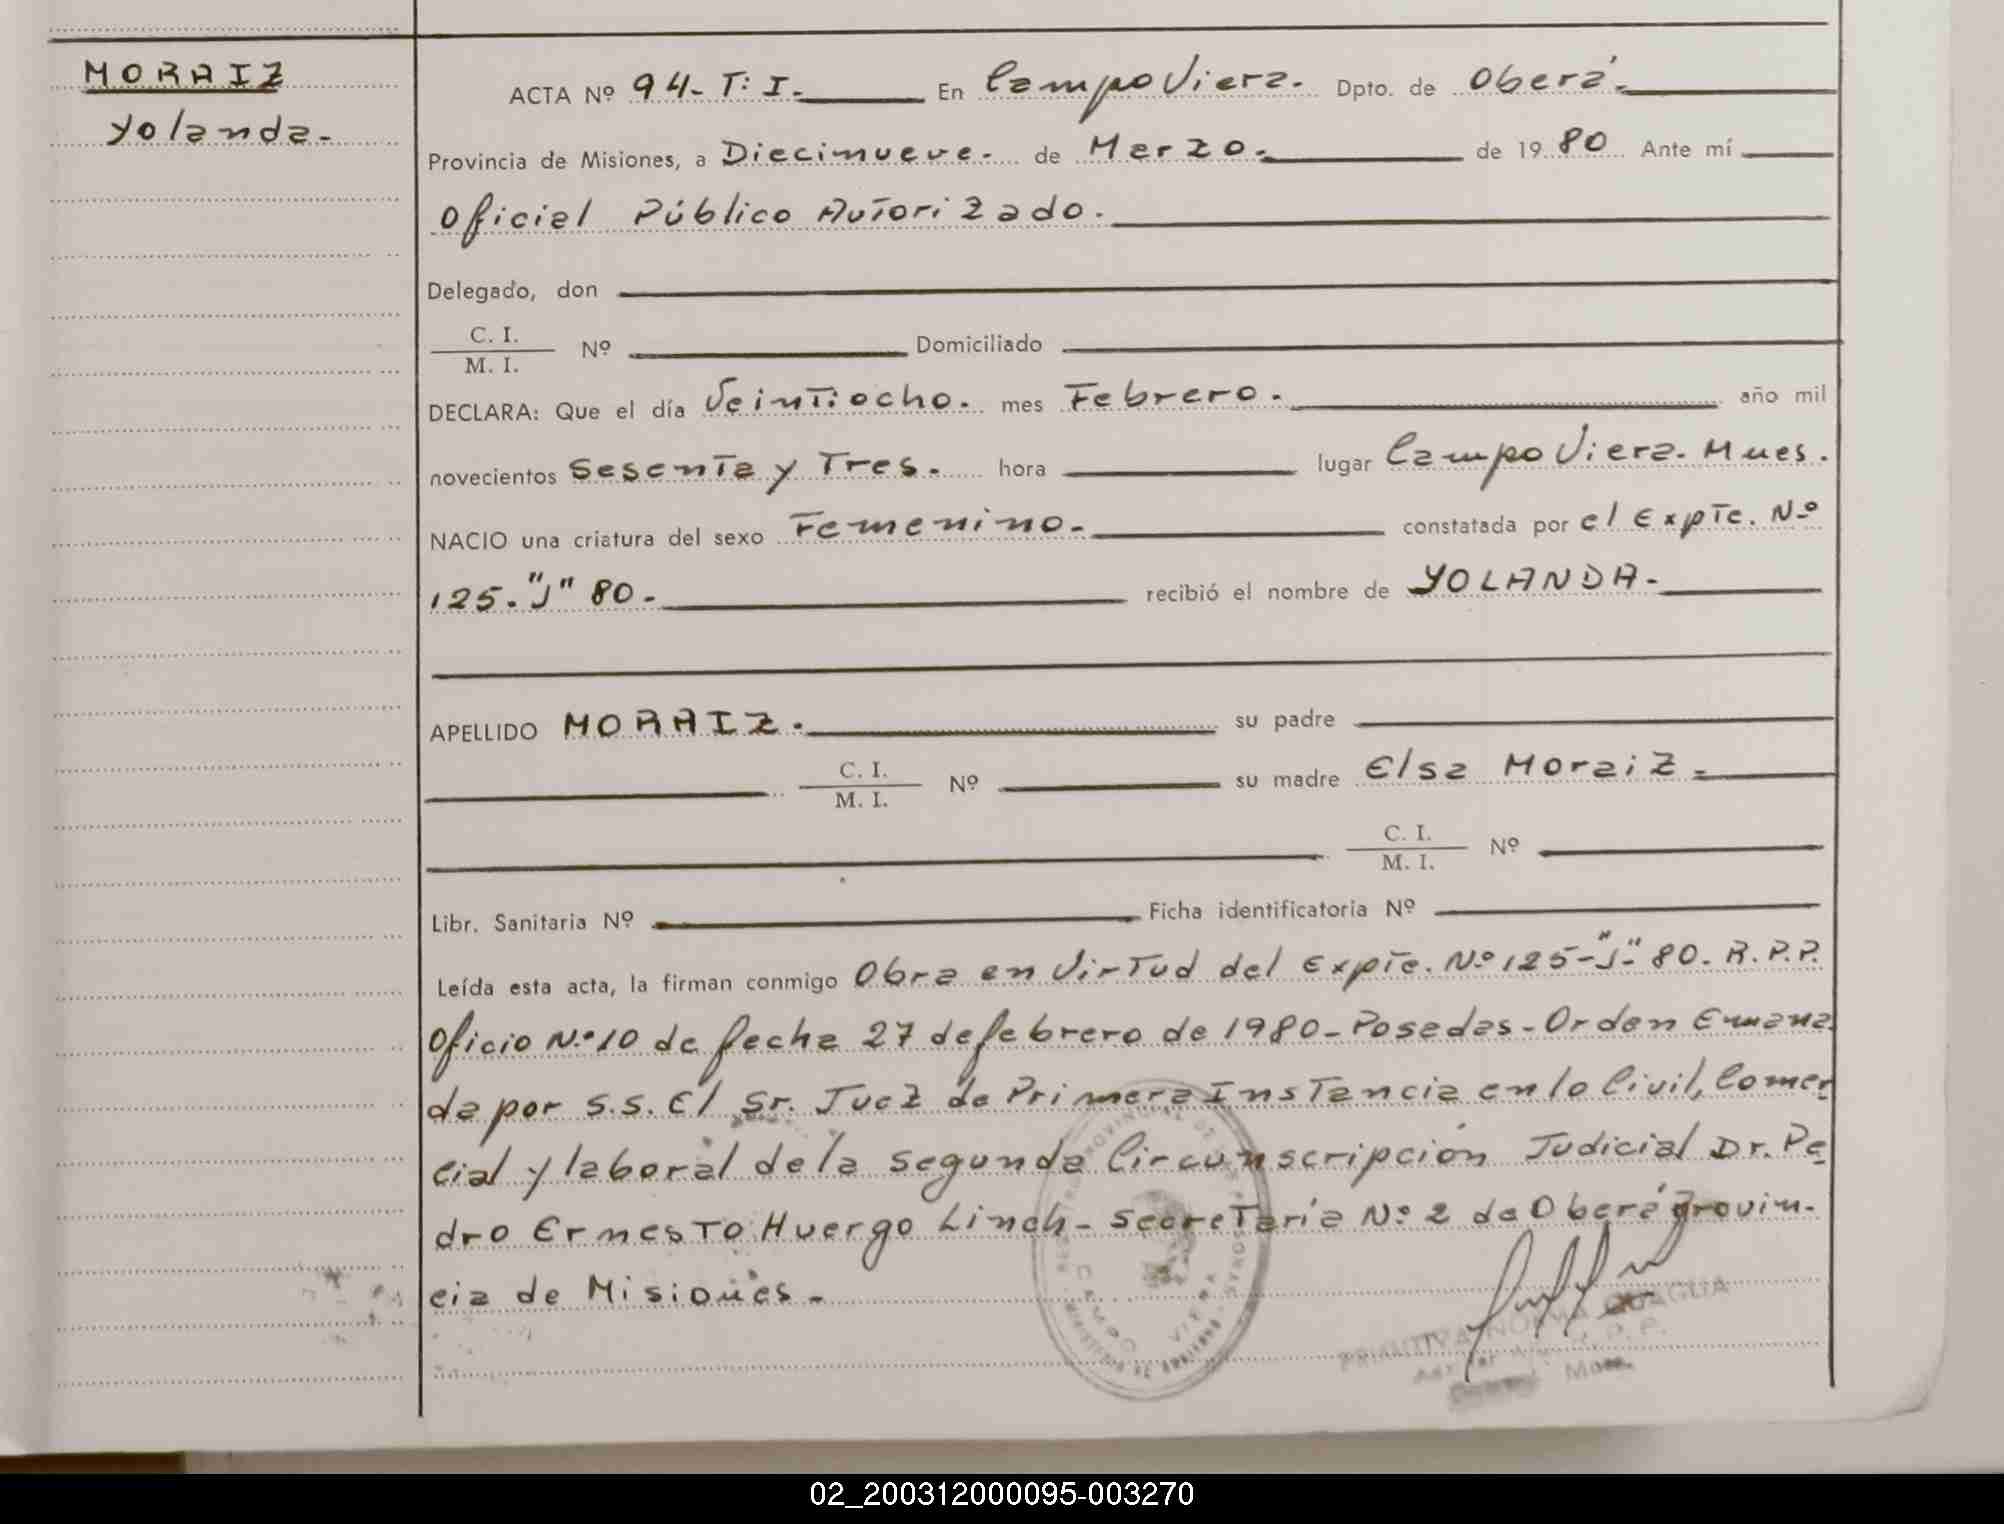 MORAIZ
Yolanda.
ACTA Nº 94-T: I. En Campo Viera. Dpto. de Oberá.
Provincia de Misiones, a Diecinueve. de Marzo. de 1980 Ante mí
Oficial Público Autorizado.
Delegado, don
C. I.
M. I. Nº Domiciliado
DECLARA: Que el día Veintiocho. mes Febrero. año mil
novecientos Sesenta y Tres. hora lugar Campo Viera. Mnes.
NACIO una criatura del sexo Femenino. constatada por el Expte. Nº
125."J" 80. recibió el nombre de YOLANDA.
APELLIDO MORAIZ. su padre
C. I.
M. I. Nº su madre Elsa Moraiz.
C. I.
M. I. Nº
Libr. Sanitaria Nº Ficha identificatoria Nº
Leída esta acta, la firman conmigo Obra en Virtud del Expte. Nº 125-"J"- 80. R.P.P.
Oficio Nº 10 de fecha 27 de febrero de 1980-Posadas-Orden Emana
da por S.S. El Sr. Juez de Primera Instancia en lo Civil, Comer
cial y laboral de la segunda Circunscripción Judicial Dr. Pe
dro Ernesto Huergo Linch-Secretaría Nº 2 de Oberá Provin-
cia de Misiones.
CAMPO VIERA
PRIMITIVA NORMA
02_200312000095-003270